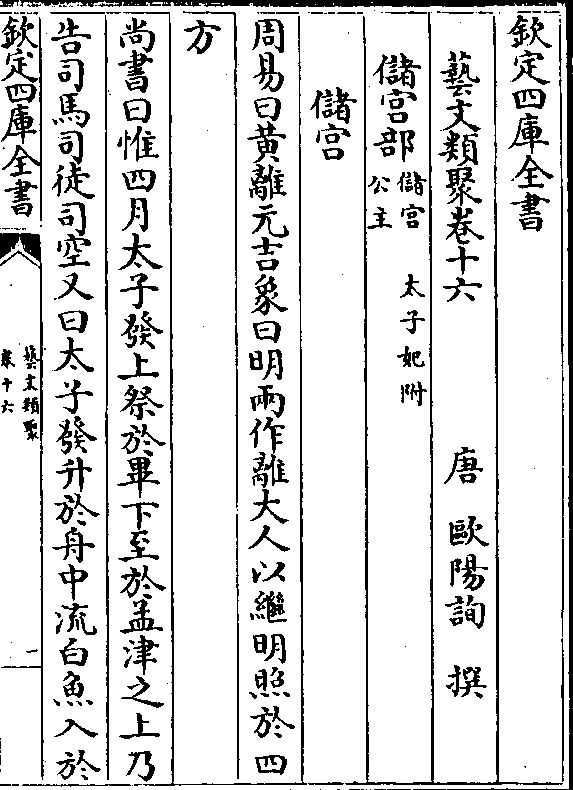 欽定四庫全書
藝文類聚卷十六
唐 歐陽詢 撰
儲宫部 儲宫 太子妃附
公主
儲宫
周易曰黄離元吉象曰明兩作離大人以繼明照於四
方
尚書曰惟四月太子發上祭於畢下至於孟津之上乃
告司馬司徒司空又曰太子發升於舟中流白魚入於
欽定四庫全書
藝文類聚
卷十六
一